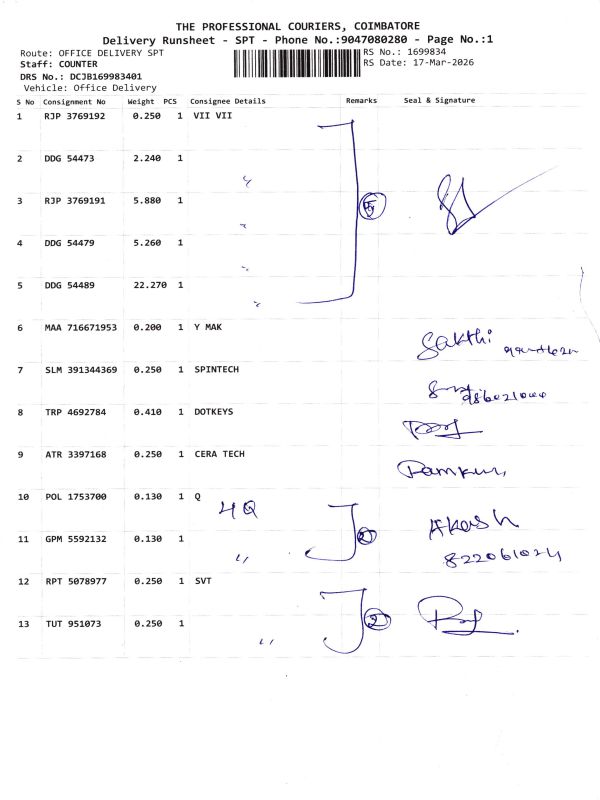 THE PROFESSIONAL COURIERS, COIMBATORE
Delivery Runsheet - SPT - Phone No.:9047080280 - Page No.:1
Route: OFFICE DELIVERY SPT RS No.: 1699834
Staff: COUNTER RS Date: 17-Mar-2026
DRS No.: DCJB169983401
Vehicle: Office Delivery
S No Consignment No Weight PCS Consignee Details Remarks Seal & Signature
1 RJP 3769192 0.250 1 VII VII
2 DDG 54473 2.240 1
"
3 RJP 3769191 5.880 1
"
4 DDG 54479 5.260 1
"
5 DDG 54489 22.270 1
"
6 MAA 716671953 0.200 1 Y MAK Sakthi
7 SLM 391344369 0.250 1 SPINTECH
8 TRP 4692784 0.410 1 DOTKEYS
9 ATR 3397168 0.250 1 CERA TECH Ramkur
10 POL 1753700 0.130 1 Q 4Q Akash
11 GPM 5592132 0.130 1 " 2 822061024
12 RPT 5078977 0.250 1 SVT
13 TUT 951073 0.250 1 " 2